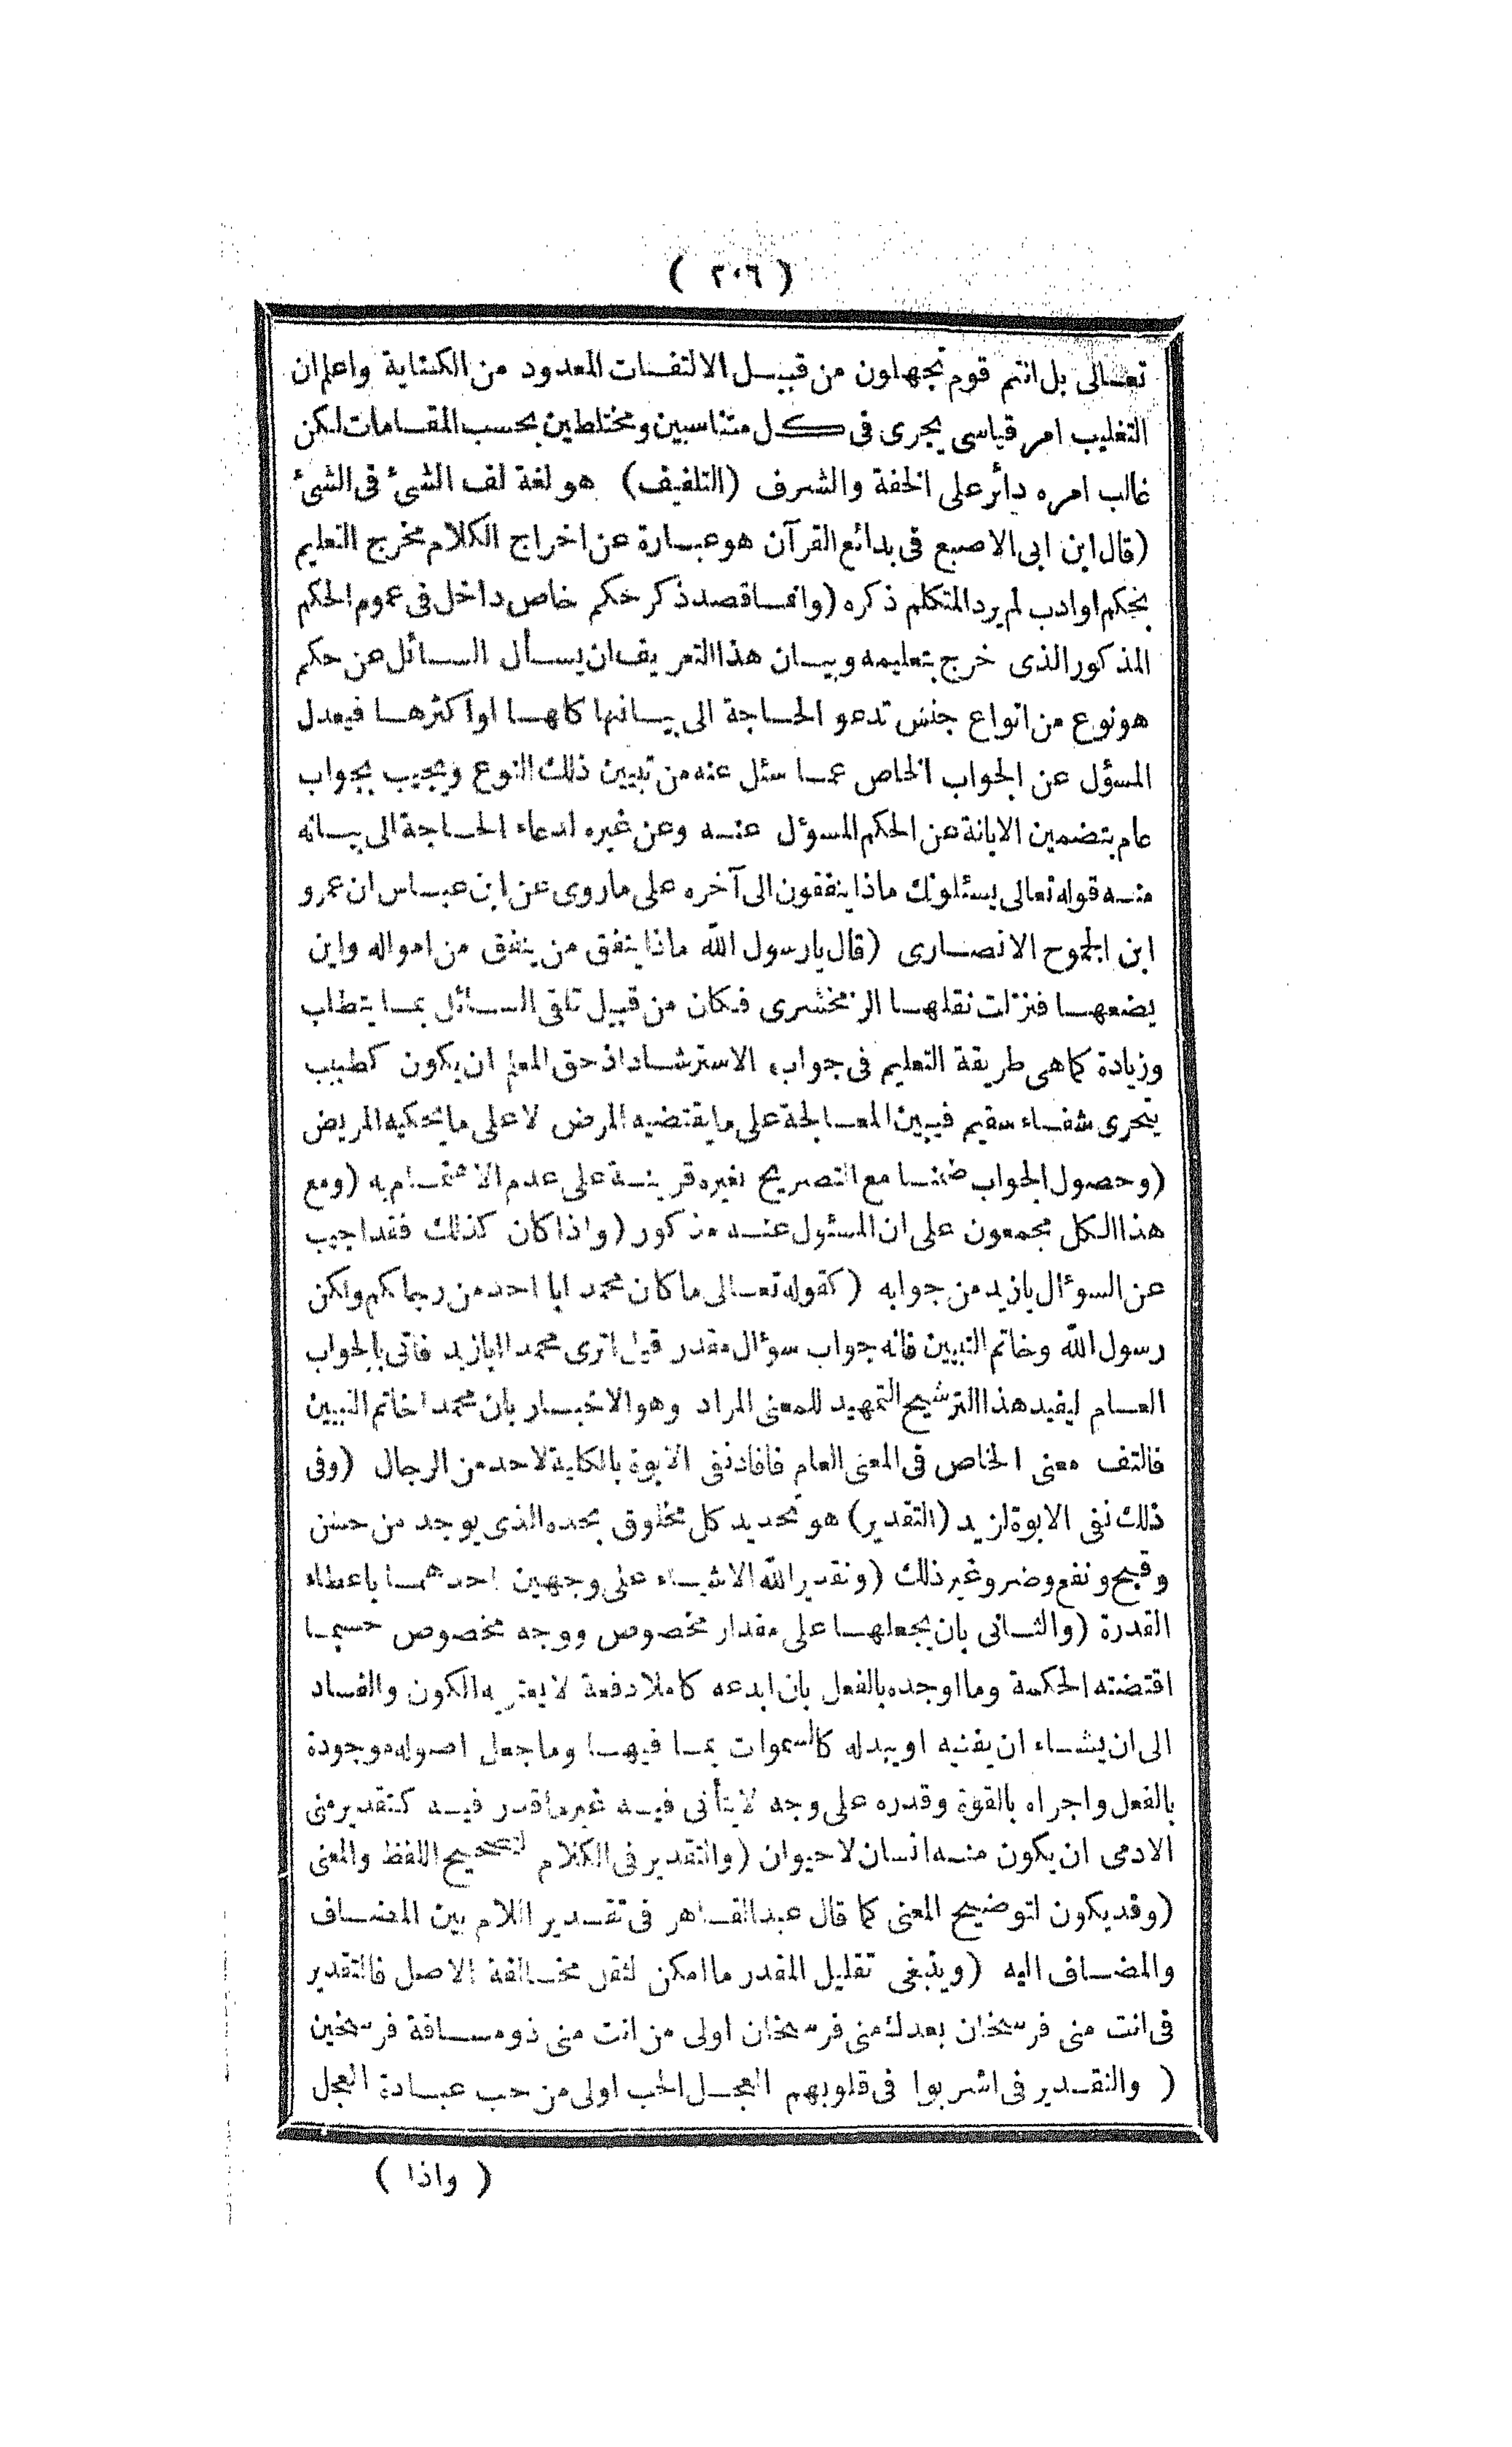 ( ٢٠٦ )
تعالى بل انتم قوم تجهلون من قبيل الالتفات المعدود من الكناية واعلم ان
التغليب امر قياسى يجرى فى كل متناسبين ومختلطين بحسب المقامات لكن
غالب امره دأر على الخفة والشرف (التلفيف) هو لغة لف الشئ فى الشئ
(قال ابن ابى الاصبع فى بدائع القرآن هو عبارة عن اخراج الكلام مخرج التعليم
بحكم او ادب لم يرد المتكلم ذكره (وانما قصد ذكر حكم خاص داخل فى عموم الحكم
المذكور الذى خرج بتعليمه وبيان هذا التعريف ان يسأل السائل عن حكم
هو نوع من انواع جنس تدعو الحاجة الى بيانها كلها او اكثرها فيعدل
المسؤل عن الجواب الخاص عما سئل عنه من تبيين ذلك النوع ويجيب بجواب
عام يتضمين الابانة عن الحكم المسوؤل عنه وعن غيره لدعاء الحاجة الى بيانه
منه قوله تعالى يسئلونك ماذا ينفقون الى آخره على ماروى عن ابن عباس ان عمرو
ابن الجموح الانصارى (قال يارسول الله ماذا ينفق من ينفق من امواله واين
يضعها فنزلت نقلها الزمخشرى فكان من قبيل تلقى السائل بما يتطلب
وزيادة كما هى طريقة التعليم فى جواب الاسترشاد اذ حق المعلم ان يكون كطبيب
يتحرى شفاء سقيم فيبين المعالجة على ما يقتضيه المرض لا على ما يحكيه المريض
(وحصول الجواب ضمنا مع التصريح بغيره قرينة على عدم الاهتمام به (ومع
هذا الكل مجمعون على ان المسئول عنه مذكور (واذا كان كذلك فقد اجيب
عن السوؤال بازيد من جوابه (كقوله تعالى ما كان محمد ابا احد من رجالكم ولكن
رسول الله وخاتم النبيين فانه جواب سوؤال مقدر قيل اترى محمدا ابا زيد فاتى بالجواب
العام ليفيد هذا الترشيح التمهيد للمعنى المراد وهو الاخبار بان محمدا خاتم النبيين
فالتف معنى الخاص فى المعنى العام فافاد نفى الابوة بالكلية لاحد من الرجال (وفى
ذلك نفى الابوة لزيد (التقدير) هو تحديد كل مخلوق بحده الذى يوجد من حسن
وقبح ونفع وضر وغير ذلك (وتقدير الله الاشياء على وجهين احدهما باعطاء
القدرة (والثانى بان يجعلها على مقدار مخصوص ووجه مخصوص حسبما
اقتضته الحكمة وما اوجده بالفعل بان ابدعه كاملا دفعة لا يعتريه الكون والفساد
الى ان يشاء ان يفنيه او يبدله كالسموات بما فيها وما جعل اصوله موجودة
بالفعل واجراه بالقوة وقدره على وجه لا يتأنى فيه غير ما قدر فيه كتقدير منى
الادمى ان يكون منه انسان لا حيوان (والتقدير فى الكلام لتصحيح اللفظ والمعنى
(وقد يكون لتوضيح المعنى كما قال عبد القاهر فى تقدير اللام بين المضاف
والمضاف اليه (وينبغى تقليل المقدر ما امكن لتقل مخالفة الاصل فالتقدير
فى انت منى فرسخان بعدك منى فرسخان اولى من انت منى ذو مسافة فرسخين
( والتقدير فى اشربوا فى قلوبهم العجل الحب اولى من حب عبادة العجل
( واذا )